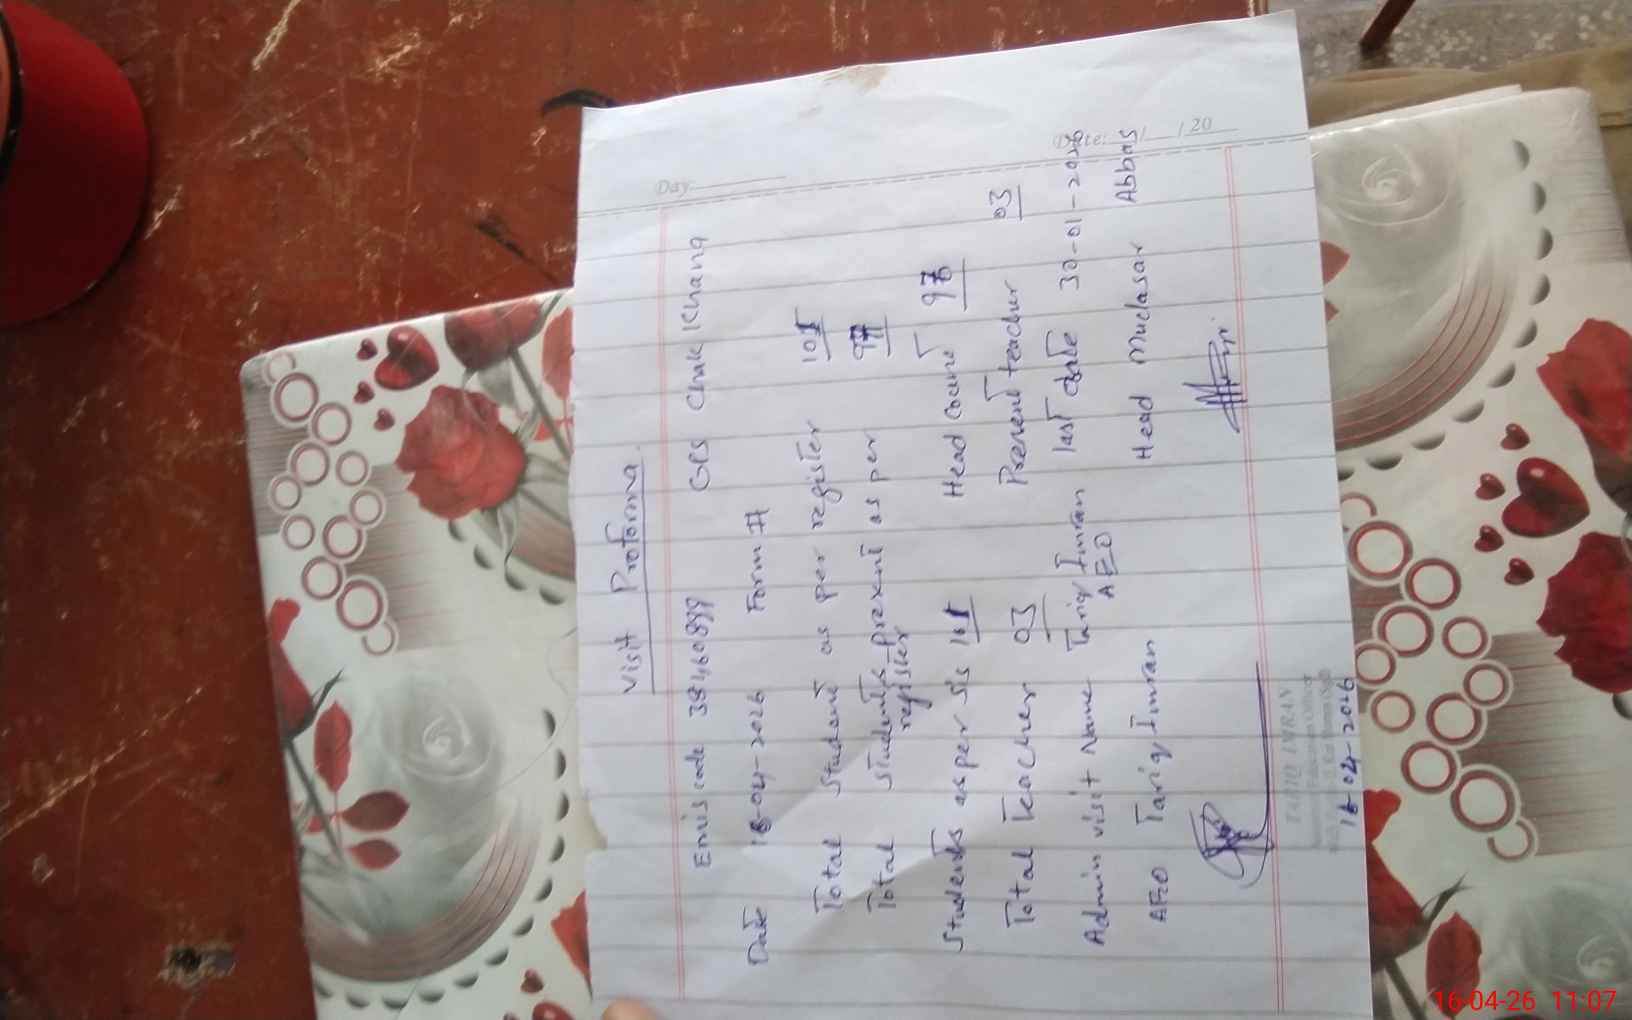 Day
Date: / / 20
Visit Proforma
Emis code 38460899 GPS Chak Khana
Date 16-04-2026 Form #
Total Student as per register 101
Total students present as per register 97
Students as per sis 101 Head Count 97
Total Teacher 03 Present teacher 03
Admin visit Name Tariq Imran AEO last date 30-01-2026
AEO Tariq Imran Head Mudasar Abbas
TARIQ IMRAN
Education Officer
16-04-2026
16-04-26 11:07